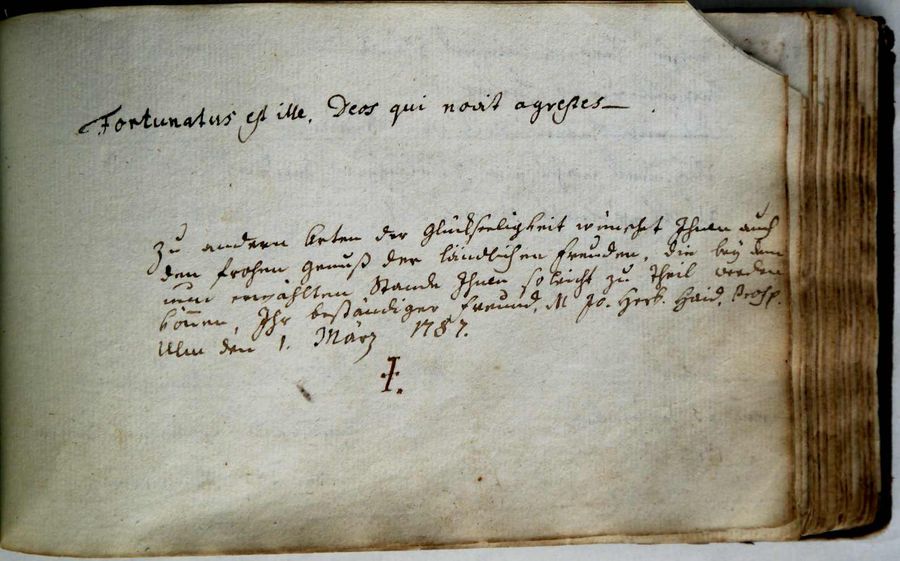 Fortunatus est ille, Deos qui novit agrestes —
Zu andern Arten der Glükseeligkeit wünscht Ihnen auch
den frohen Genuß der ländlichen Freuden, die bey dem
nun erwählten Stande Ihnen so leicht zu Theil werden
können, Ihr beständiger Freund, M. Jo. Herk. Haid, Prof.
Ulm den 1. März 1787.